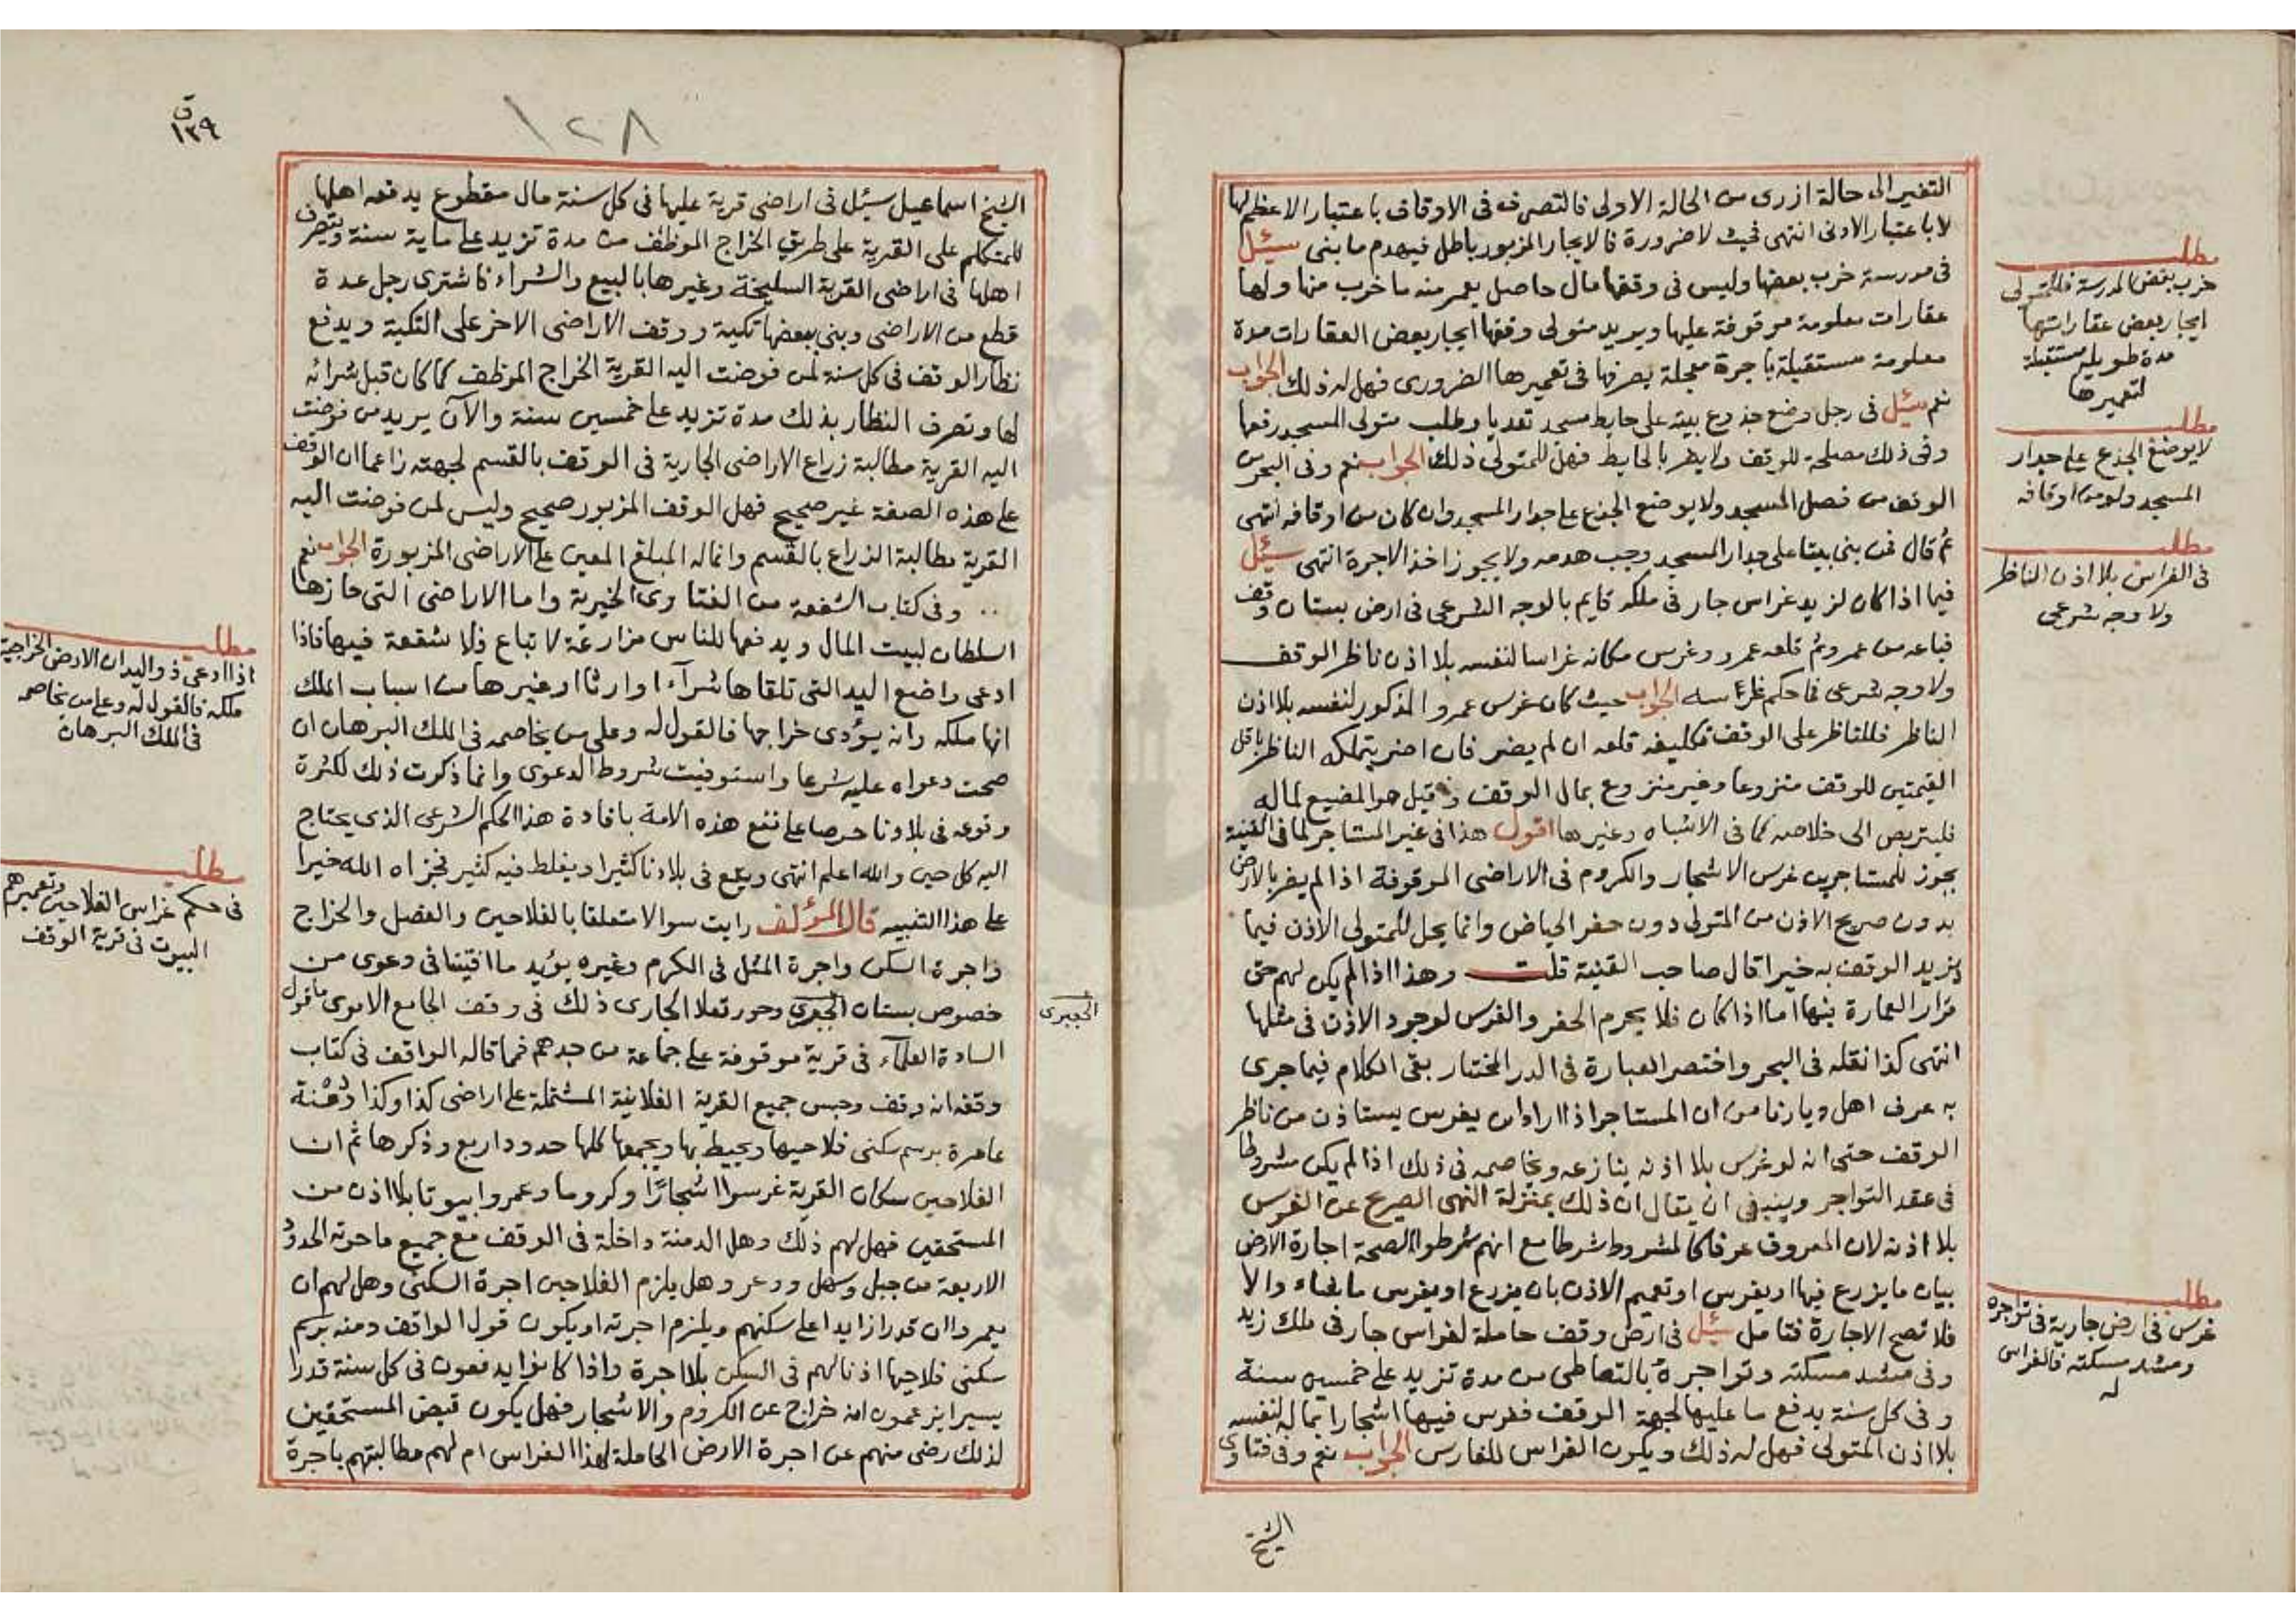 التغير الى حالة ازرى من الحالة الاولى فالتصرف فى الاوقاف باعتبار الاعظم لها
لا باعتبار الادنى انتهى فحيث لا ضرورة فالايجار المزبور باطل فيهدم ما بنى سئل
فى مدرسة خرب بعضها وليس فى وقفها مال حاصل يعمر منه ما خرب منها ولها
عقارات معلومة موقوفة عليها ويريد متولى وقفها ايجار بعض العقارات مدة
معلومة مستقبلة باجرة معجلة يصرفها فى تعميرها الضرورى فهل له ذلك الجواب
نعم سئل فى رجل وضع جذوع بيته على حايط مسجد تعديا وطلب متولى المسجد رفعها
وفى ذلك مصلحة للوقف ولا يضر بالحايط فهل للمتولى ذلك الجواب نعم وفى البحر من
الوقف من فصل المسجد ولا يوضع الجذع على جدار المسجد وان كان من اوقافه انتهى
ثم قال فمن بنى بيتا على جدار المسجد وجب هدمه ولا يجوز اخذ الاجرة انتهى سئل
فيما اذا كان لزيد غراس جار فى ملكه قايم بالوجه الشرعى فى ارض بستان وقف
فباعه من عمرو ثم قلعه عمرو وغرس مكانه غراسا لنفسه بلا اذن ناظر الوقف
ولا وجه شرعى فما حكم غراسه الجواب حيث كان غرس عمرو المذكور لنفسه بلا اذن
الناظر فللناظر على الوقف تكليفه قلعه ان لم يضر فان اضر يتملكه الناظر باقل
القيمتين للوقف منزوعا وغير منزوع بمال الوقف وقيل هو المضيع لماله
فليتربص الى خلاصه كما فى الاشباه وغيرها اقول هذا فى غير المستاجر لما فى القنية
يجوز للمستاجرين غرس الاشجار والكروم فى الاراضى الموقوفة اذا لم يضر بالارض
بدون صريح الاذن من المتولى دون حفر الحياض وانما يحل للمتولى الاذن فيما
يزيد الوقف به خيرا قال صاحب القنية قلت وهذا اذا لم يكن لهم حق
قرار العمارة فيها اما اذا كان فلا يحرم الحفر والغرس لوجود الاذن فى مثلها
انتهى كذا نقله فى البحر واختصر العبارة فى الدر المختار بقى الكلام فيما جرى
به عرف اهل ديارنا من ان المستاجر اذا اراد ان يغرس يستاذن من ناظر
الوقف حتى انه لو غرس بلا اذنه ينازعه ويخاصمه فى ذلك اذا لم يكن مشروطا
فى عقد التواجر وينبغى ان يقال ان ذلك بمنزلة النهى الصريح عن الغرس
بلا اذنه لان المعروف عرفا كالمشروط شرطا مع انهم شرطوا لصحة اجارة الارض
بيان ما يزرع فيها او يغرس او تعميم الاذن بان يزرع او يغرس ما شاء والا
فلا تصح الاجارة فتامل سئل فى ارض وقف حاملة لغراس جار فى ملك زيد
وفى مشد مسكته وتواجره بالتعاطى من مدة تزيد على خمسين سنة
وفى كل سنة يدفع ما عليها لجهة الوقف فغرس فيها اشجارا بماله لنفسه
بلا اذن المتولى فهل له ذلك ويكون الغراس للغارس الجواب نعم وفى فتاوى
الشيخ
مطلب
خرب بعض المدرسة فللمتولى
ايجار بعض عقاراتها
مدة طويلة مستقبلة
لتعميرها
مطلب
لا يوضع الجذع على جدار
المسجد ولو من اوقافه
مطلب
فى الغراس بلا اذن الناظر
ولا وجه شرعى
مطلب
غرس فى ارض جارية فى تواجره
ومشد مسكته فالغراس
له
١٢٨
ق
١٣٩
الشيخ اسماعيل سئل فى اراضى قرية عليها فى كل سنة مال مقطوع يدفعه اهلها
للمتكلم على القرية على طريق الخراج الموظف من مدة تزيد على ماية سنة ويتصرف
اهلها فى اراضى القرية السليخة وغيرها بالبيع والشراء فاشترى رجل عدة
قطع من الاراضى وبنى ببعضها تكية ووقف الاراضى الاخر على التكية ويدفع
نظار الوقف فى كل سنة لمن فوضت اليه القرية الخراج الموظف كما كان قبل شرائه
لها وتصرف النظار بذلك مدة تزيد على خمسين سنة والآن يريد من فوضت
اليه القرية مطالبة زراع الاراضى الجارية فى الوقف بالقسم لجهته زاعما ان الوقف
على هذه الصفة غير صحيح فهل الوقف المزبور صحيح وليس لمن فوضت اليه
القرية مطالبة الزراع بالقسم وانما له المبلغ المعين على الاراضى المزبورة الجواب نعم
وفى كتاب الشفعة من الفتاوى الخيرية واما الاراضى التى حازها
السلطان لبيت المال ويدفعها للناس مزارعة لا تباع فلا شفعة فيها فاذا
ادعى واضع اليد التى تلقاها شرآء او ارثا او غيرها من اسباب الملك
انها ملكه وانه يؤدى خراجها فالقول له وعلى من يخاصمه فى الملك البرهان ان
صحت دعواه عليه شرعا واستوفيت شروط الدعوى وانما ذكرت ذلك لكثرة
وقوعه فى بلادنا حرصا على نفع هذه الامة بافادة هذا الحكم الشرعى الذى يحتاج
اليه كل حين والله اعلم انتهى ويقع فى بلادنا كثيرا ويغلط فيه كثير فجزاه الله خيرا
على هذا التنبيه قال المؤلف رايت سوالا متعلقا بالفلاحين والفصل والخراج
واجرة السكن واجرة المثل فى الكرم وغيره يؤيد ما افتينا فى دعوى من
خصوص بستان الجعبرى وحور تعلا الجارى ذلك فى وقف الجامع الاموى ما قول
السادة العلمآء فى قرية موقوفة على جماعة من جدهم فما قاله الواقف فى كتاب
وقفه انه وقف وحبس جميع القرية الفلانية المشتملة على اراضى كذا وكذا ودمنة
عامرة برسم سكنى فلاحيها ويحيط بها ويجمعها كلها حدود اربع وذكرها ثم ان
الفلاحين سكان القرية غرسوا اشجارًا وكروما وعمروا بيوتا بلا اذن من
المستحقين فهل لهم ذلك وهل الدمنة داخلة فى الوقف مع جميع ما حوته الحدود
الاربعة من جبل وسهل ووعر وهل يلزم الفلاحين اجرة السكنى وهل لهم ان
يعمروا ان قدرا زايدا على سكنهم ويلزم اجرته او يكون قول الواقف دمنه برسم
سكنى فلاحيها اذنا لهم فى السكن بلا اجرة واذا كانوا يدفعون فى كل سنة قدرا
يسيرا يزعمون انه خراج عن الكروم والاشجار فهل يكون قبض المستحقين
لذلك رضى منهم عن اجرة الارض الحاملة لهذا الغراس ام لهم مطالبتهم باجرة
الجعبرى
مطلب
اذا ادعى ذو اليد ان الارض الخراجية
ملكه فالقول له وعلى من يخاصمه
فى الملك البرهان
مطلب
فى حكم غراس الفلاحين وتعميرهم
البيوت فى قرية الوقف